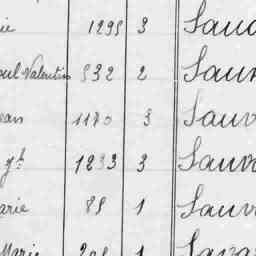 ie 1295 3 Sauv
oul Valentin 532 2 Sauv
ean 1180 3 Sauv
yh 1233 3 Sauv
arie 89 1 Sauv
Marie 1